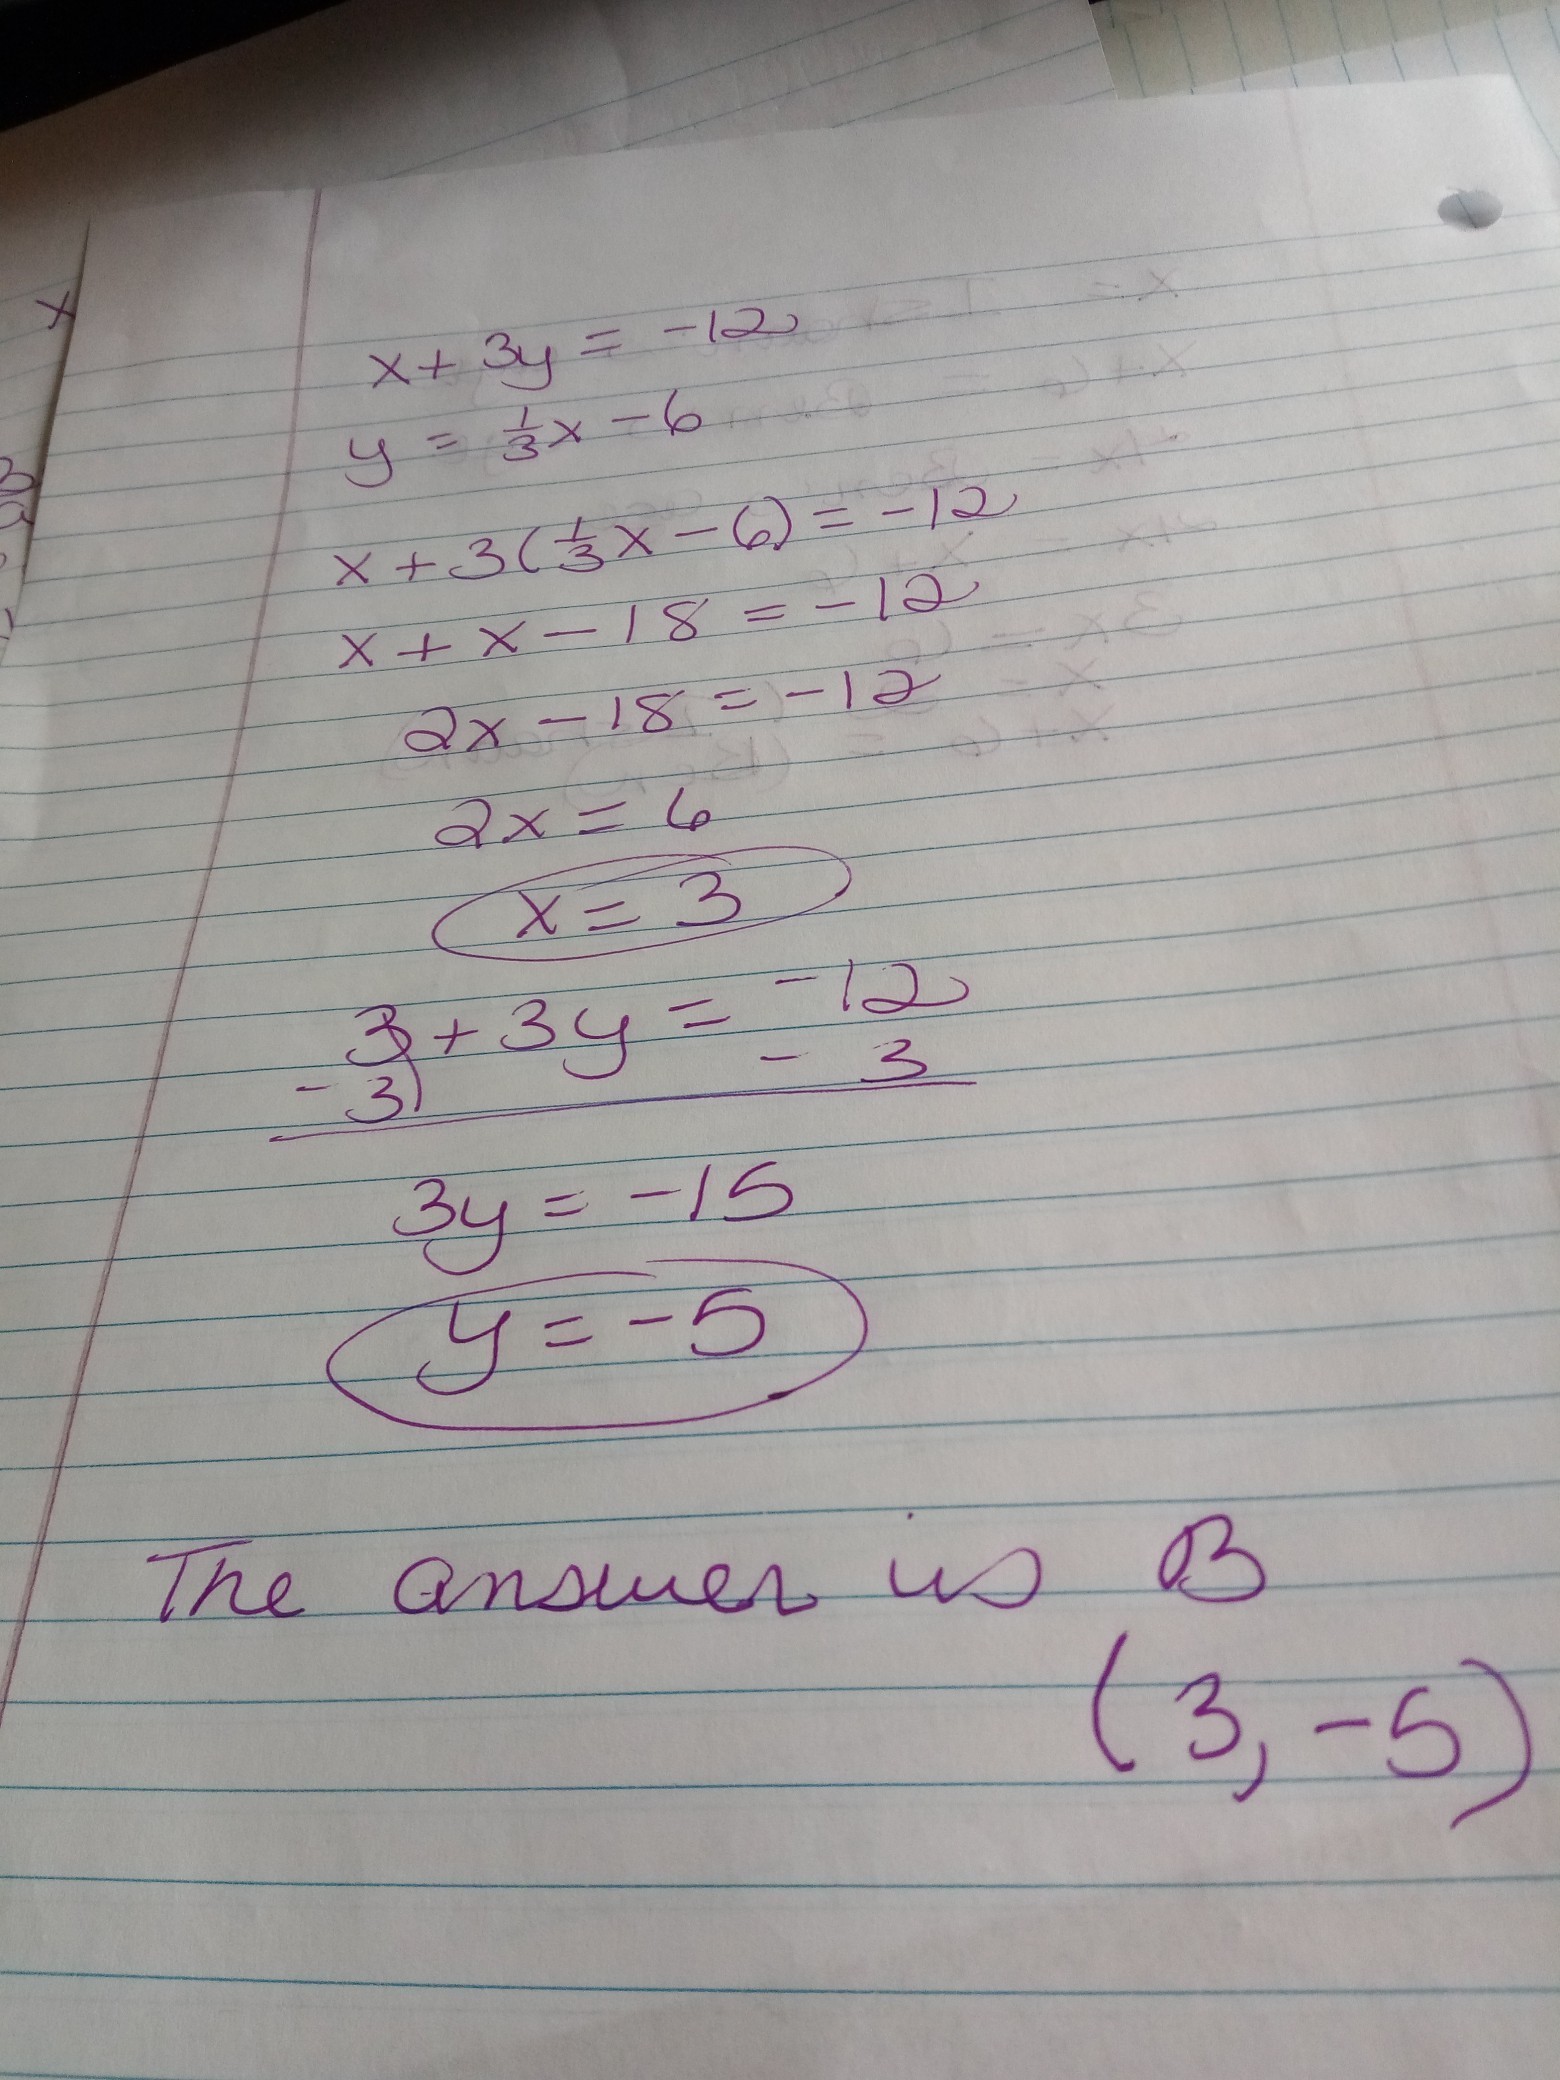 x + 3y = -12
y = 1/3x - 6
x + 3(1/3x - 6) = -12
x + x - 18 = -12
2x - 18 = -12
2x = 6
x = 3
3 + 3y = -12
- 3 - 3
3y = -15
y = -5
The answer is B
(3, -5)